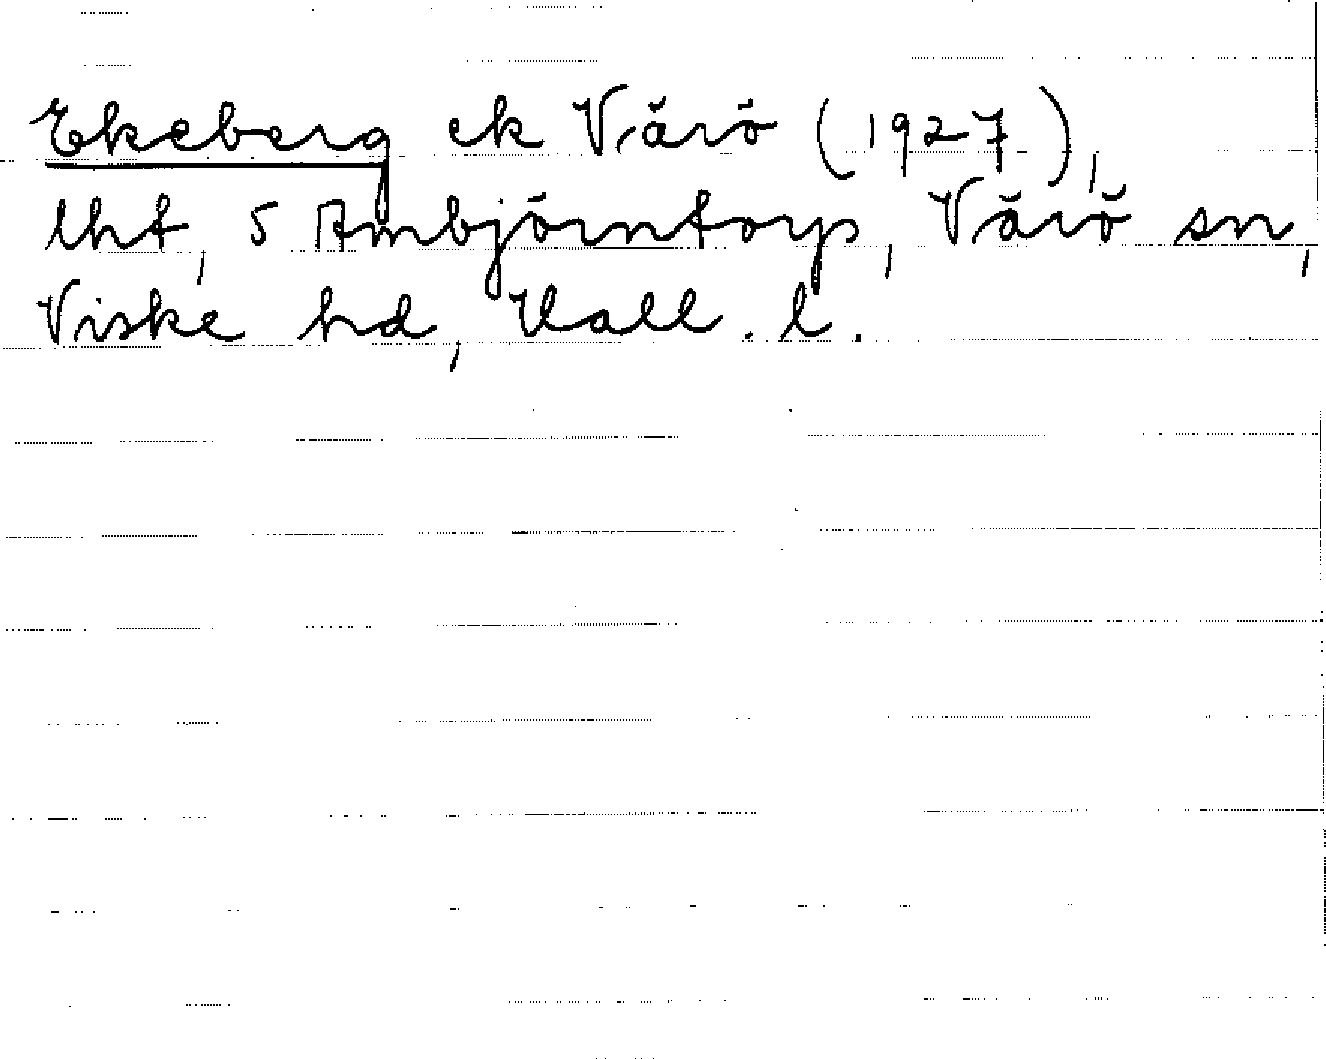 Ekeberg ek Värö (1927),
lht, 5 Ambjörntorp, Värö sn,
Viske hd, Hall. l.